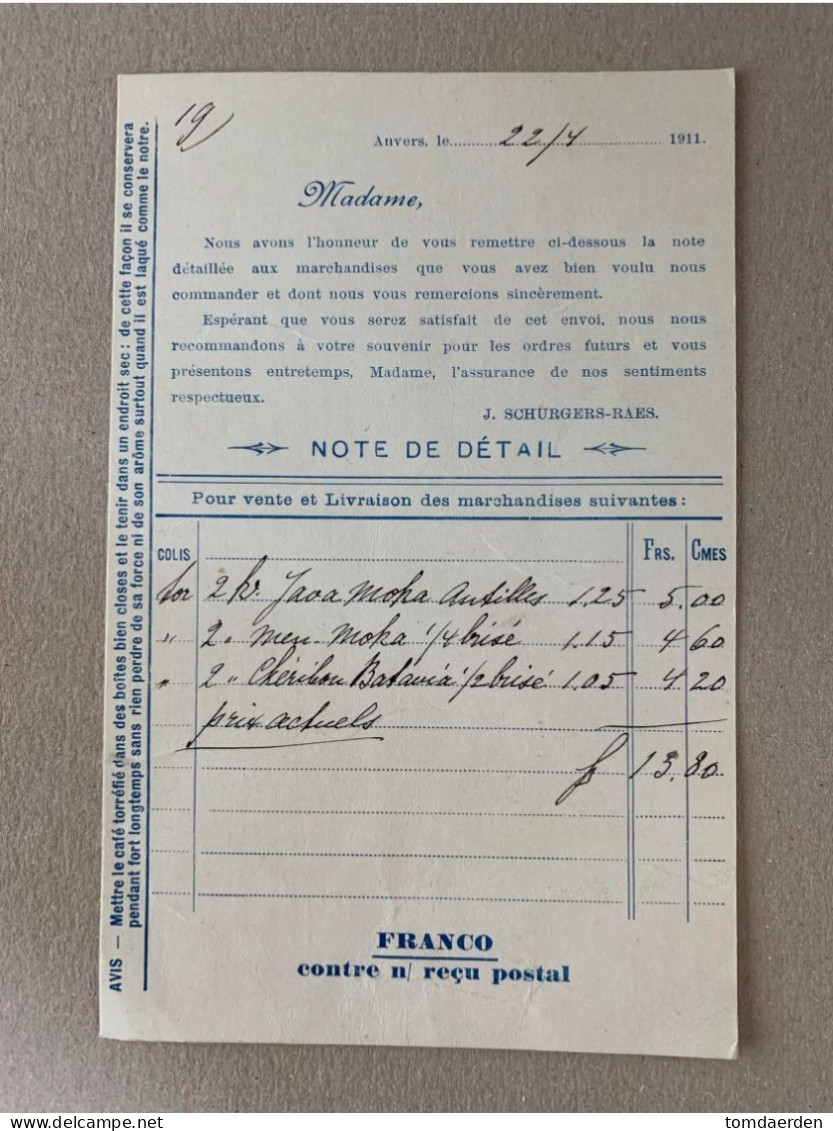 19)
Anvers, le 22/4 1911.
Madame,
Nous avons l'honneur de vous remettre ci-dessous la note
détaillée aux marchandises que vous avez bien voulu nous
commander et dont nous vous remercions sincèrement.
Espérant que vous serez satisfait de cet envoi, nous nous
recommandons à votre souvenir pour les ordres futurs et vous
présentons entretemps, Madame, l'assurance de nos sentiments
respectueux.
J. SCHURGERS-RAES.
NOTE DE DÉTAIL
Pour vente et Livraison des marchandises suivantes :
COLIS FRS. CMES
tor 2 k. Java Moka Antilles 1.25 5.00
" 2 " Men-Moka 1/4 brisé 1.15 4 60
" 2 " Chéribon Batavia 1/2 brisé 1.05 4 20
prix actuels
f 13.80
FRANCO
contre n/ reçu postal
AVIS — Mettre le café torréfié dans des boîtes bien closes et le tenir dans un endroit sec : de cette façon il se conservera
pendant fort longtemps sans rien perdre de sa force ni de son arôme surtout quand il est laqué comme le notre.
tomdaerden